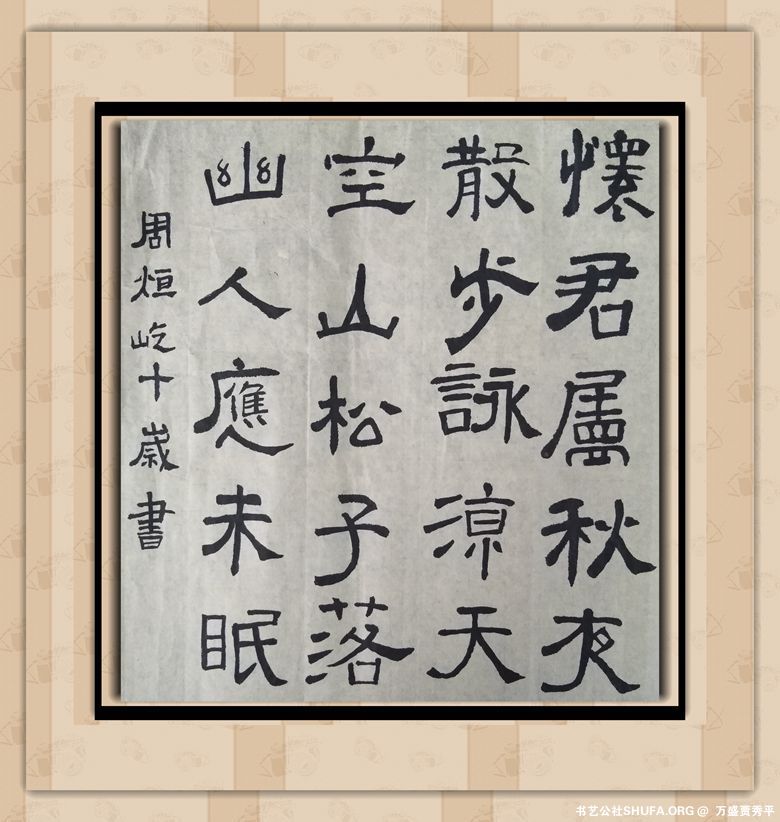 懷君屬秋夜
散步詠涼天
空山松子落
幽人應未眠
周烜屹十歲書
书艺公社SHUFA.ORG @ 万盛贾秀平